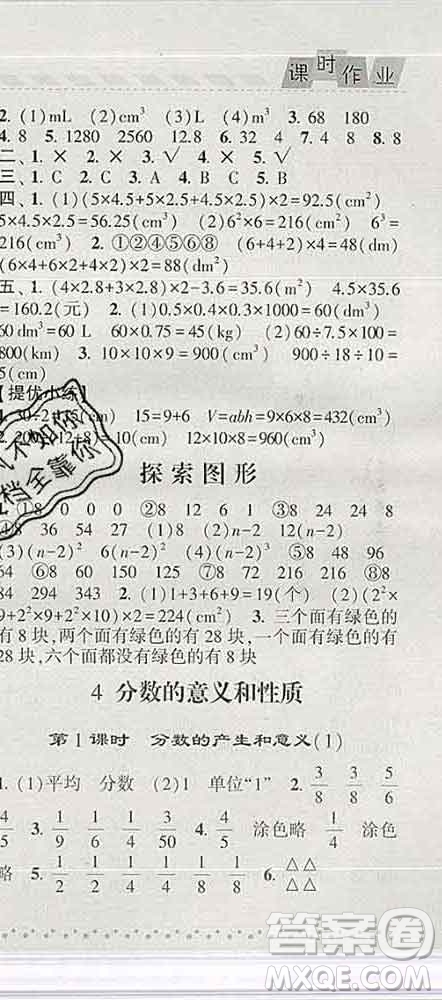 课时作业
2. (1)mL (2)cm³ (3)L (4)m³ 3. 68 180
4. 8 5. 1280 2560 12.8 6. 32 4 7. 4 8. 8
二、1. × 2. × 3. √ 4. × 5. √
三、1. C 2. C 3. A 4. B C 5. B
四、1. (1)(5×4.5+5×2.5+4.5×2.5)×2=92.5(cm²)
5×4.5×2.5=56.25(cm³) (2)6²×6=216(cm²) 6³=
216(cm³) 2. ①②④⑤⑥⑧ (6+4+2)×4=48(dm)
(6×4+6×2+4×2)×2=88(dm²)
五、1. (4×2.8+3×2.8)×2-3.6=35.6(m²) 4.5×35.6
=160.2(元) 2. (1)0.5×0.4×0.3×1000=60(dm³)
60dm³=60L 60×0.75=45(kg) (2)60÷7.5×100=
800(km) 3. 30×30=900(cm²) 900÷30÷6=
5(cm)
【提优小练】
30÷2=15(cm) 15=9+6 V=abh=9×6×8=432(cm³)
2. 200÷(12+8)=10(cm) 12×10×8=960(cm³)
探索图形
①8 0 0 0 ②8 12 6 1 ③8 24 24 8
8 36 54 27 (1)8 (2)(n-2)×12
(3)(n-2)²×6 (4)(n-2)³ ⑤8 48 96
64 ⑥8 60 150 125 ⑦8 72 216 216 ⑧8
84 294 343 2. (1)1+3+6+9=19(个) (2)(2²×
9+2²×9+2²×10)×2=224(cm²) 3. 三个面有绿色的
有8块,两个面有绿色的有28块,一个面有绿色的有
28块,六个面都没有绿色的有8块
4 分数的意义和性质
第1课时 分数的产生和意义(1)
1. (1)平均 分数 (2)1 单位“1” 2. 3/8 3/8 5/6
4/5 3. 1/9 1/9 1/3 3/50 4. 4/5 涂色略 1/4 涂色
略 5. 1/2 1/2 1/4 1/4 1/8 1/8 6. △△
△△
答案圈
MXQE.COM